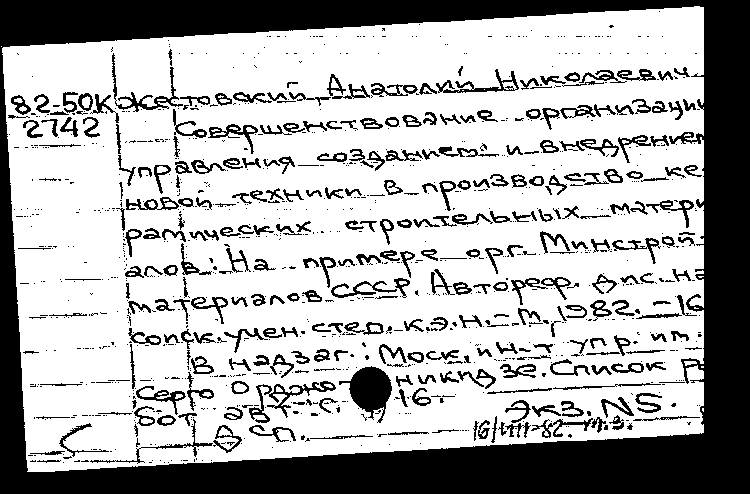 82-50К жестовский, Анатолий Николаевич
2742 Совершенствование организации
управления созданием и внедрением
новой техники в производство ке-
рамических строительных матери-
алов: На примере орг. Минстрой-
материалов СССР. Автореф. дис. на
соиск. учен. степ. к.э.н. - М., 1982. - 16
В надзаг.: Моск. ин-т упр. им.
Серго Орджоникидзе. Список ра
бот авт.: с. 16.
Экз. NS.
В сп.
16/VIII-82. м.з.